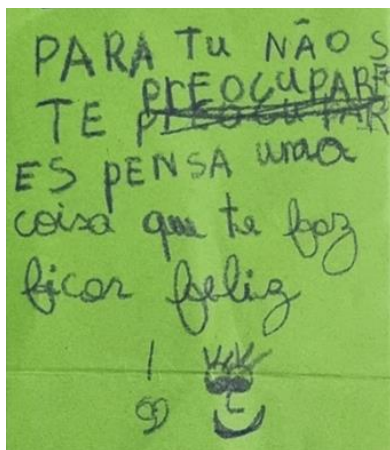 PARA TU NÃO S
PREOCUPARE
TE PREOCUPAR
ES PENSA uma
coisa que te faz
ficar feliz